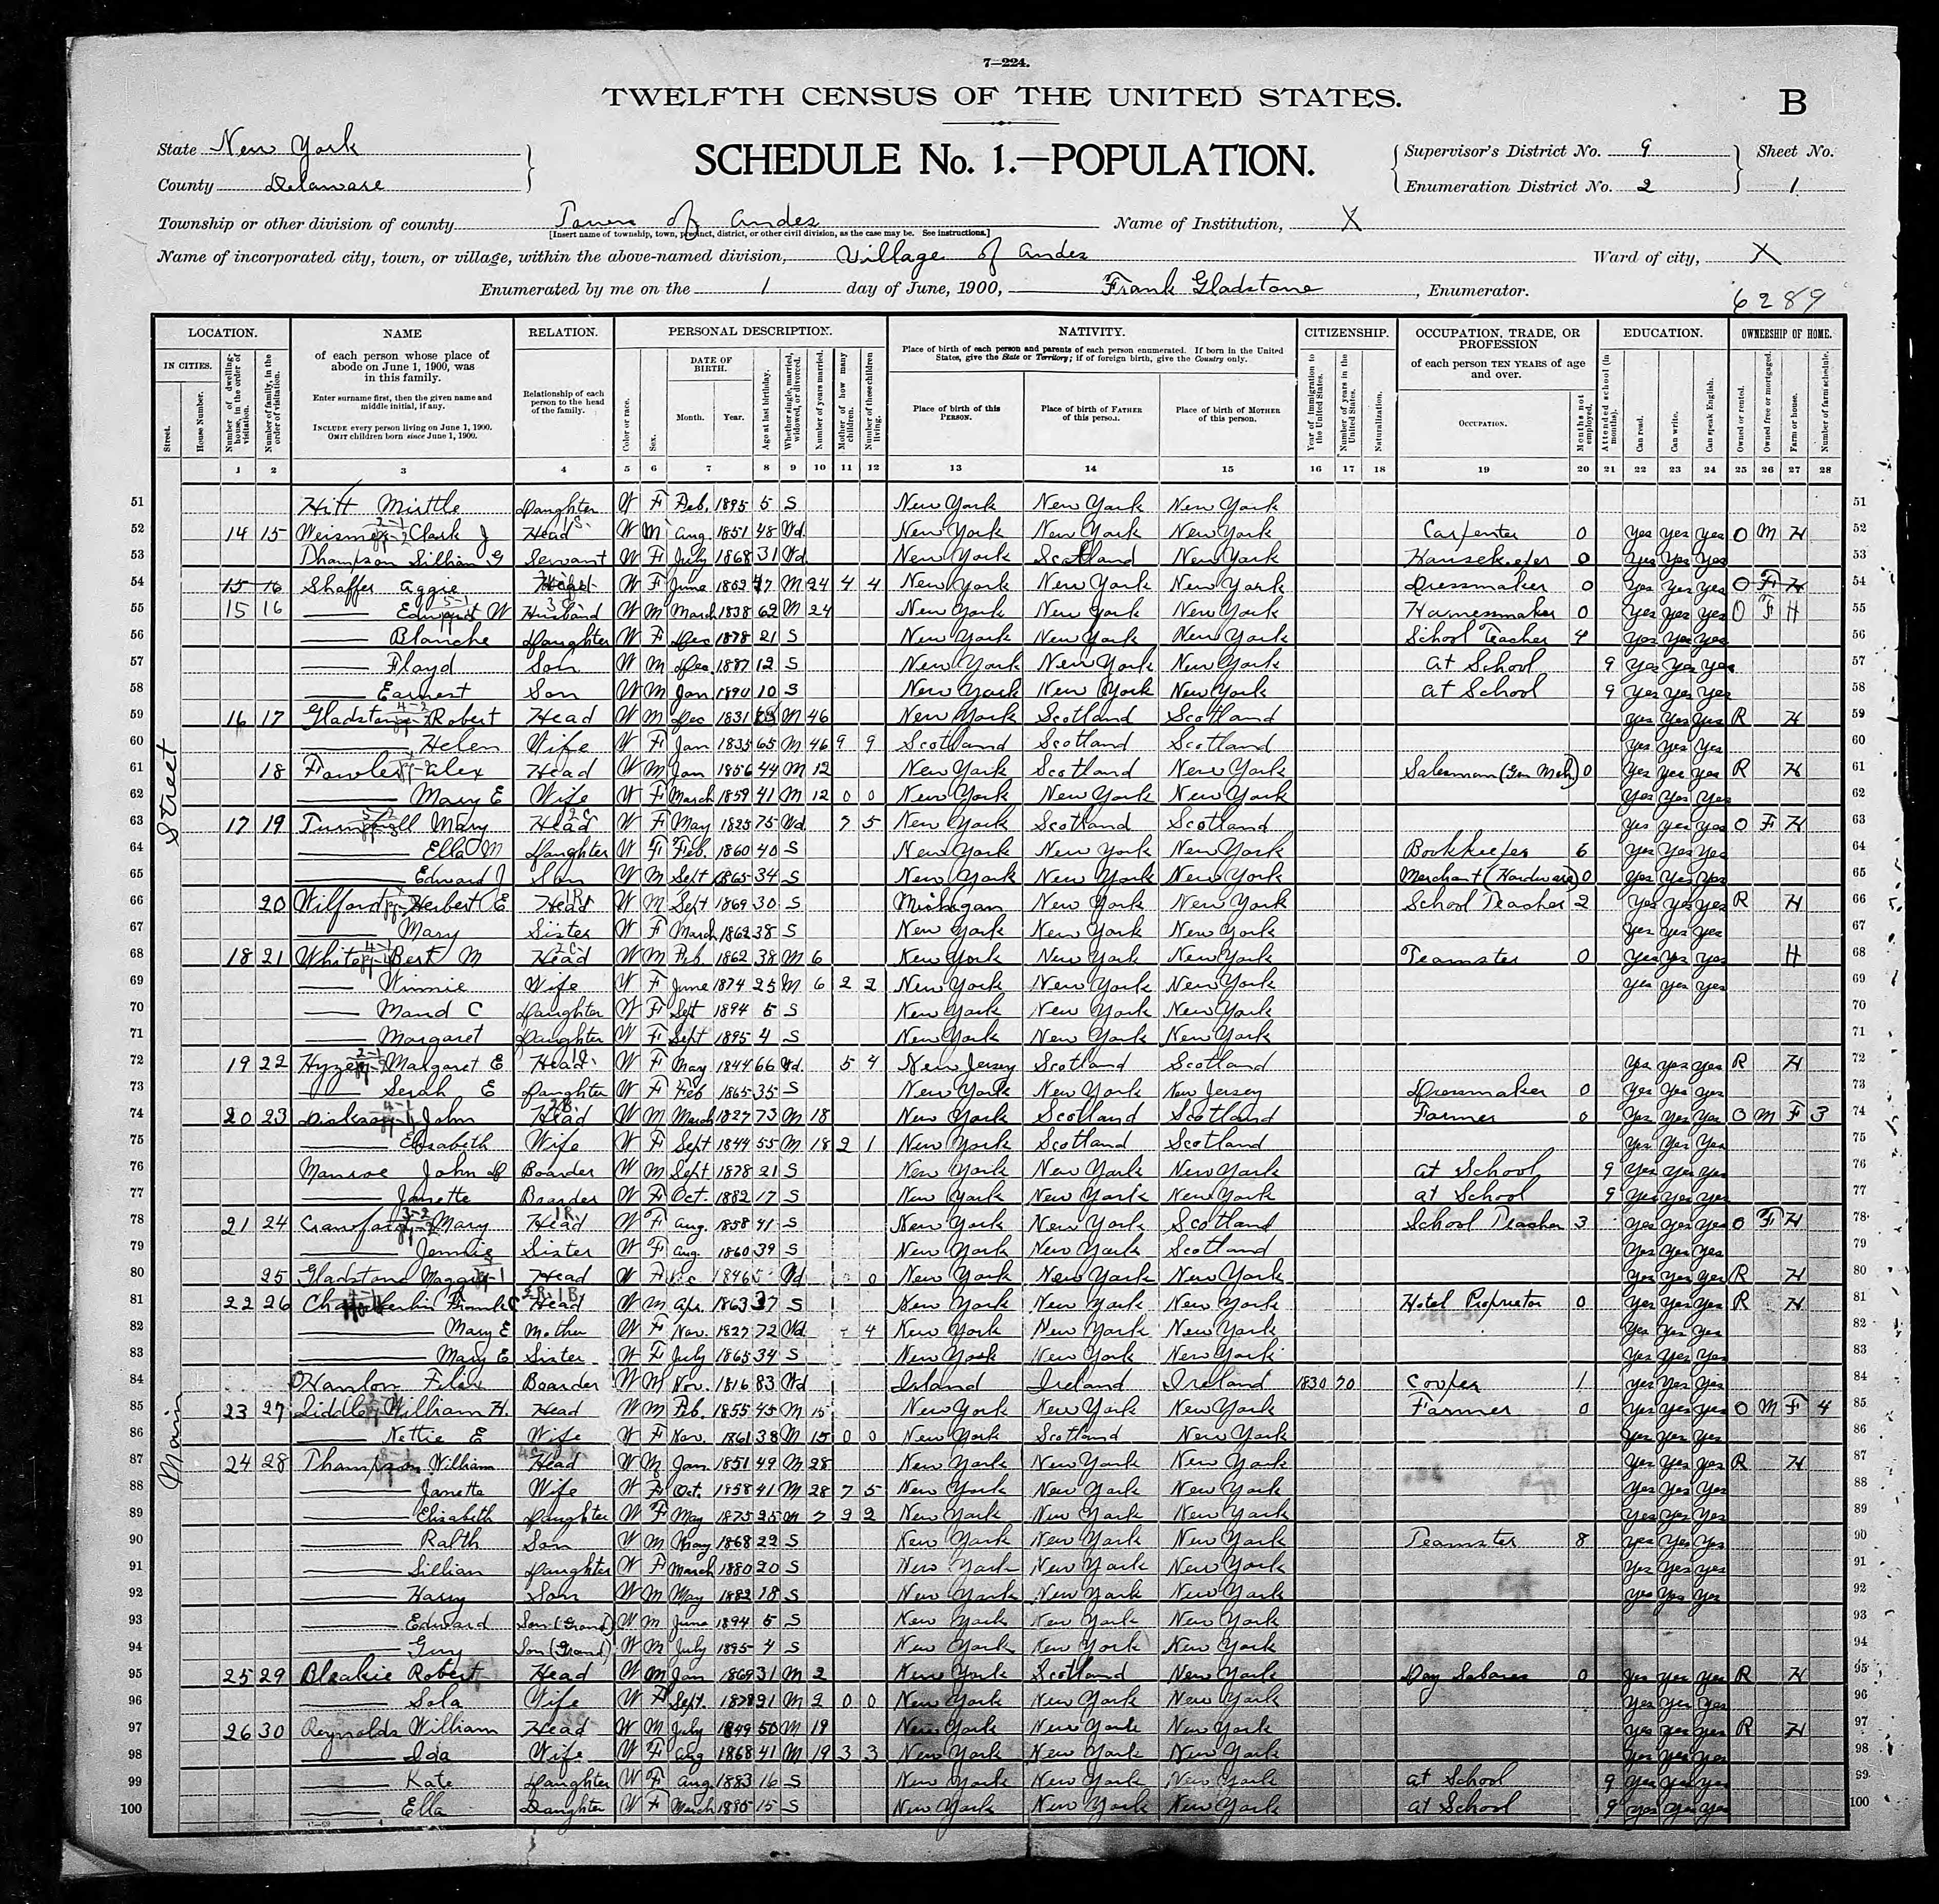 7—224.
TWELFTH CENSUS OF THE UNITED STATES.
B
State New York
SCHEDULE No. 1.—POPULATION.
Supervisor's District No. 9
Sheet No.
County Delaware
Enumeration District No. 2
1
Township or other division of county Town of Andes
Name of Institution, X
[Insert name of township, town, precinct, district, or other civil division, as the case may be. See instructions.]
Name of incorporated city, town, or village, within the above-named division, Village of Andes
Ward of city, X
Enumerated by me on the 1 day of June, 1900, Frank Gladstone, Enumerator.
6289
LOCATION. NAME RELATION. PERSONAL DESCRIPTION. NATIVITY. CITIZENSHIP. OCCUPATION, TRADE, OR PROFESSION EDUCATION. OWNERSHIP OF HOME.
IN CITIES.
Street.
House Number.
Number of dwelling-house, in the order of visitation.
Number of family, in the order of visitation.
of each person whose place of abode on June 1, 1900, was in this family.
Enter surname first, then the given name and middle initial, if any.
INCLUDE every person living on June 1, 1900.
OMIT children born since June 1, 1900.
Relationship of each person to the head of the family.
Color or race.
Sex.
DATE OF BIRTH.
Month. Year.
Age at last birthday.
Whether single, married, widowed, or divorced.
Number of years married.
Mother of how many children.
Number of these children living.
Place of birth of each person and parents of each person enumerated. If born in the United States, give the State or Territory; if of foreign birth, give the Country only.
Place of birth of this PERSON.
Place of birth of FATHER of this person.
Place of birth of MOTHER of this person.
Year of immigration to the United States.
Number of years in the United States.
Naturalization.
of each person TEN YEARS of age and over.
OCCUPATION.
Months not employed.
Attended school (in months).
Can read.
Can write.
Can speak English.
Owned or rented.
Owned free or mortgaged.
Farm or house.
Number of farm schedule.
1 2 3 4 5 6 7 8 9 10 11 12 13 14 15 16 17 18 19 20 21 22 23 24 25 26 27 28
Street
Main
51 Hitt Mirtle Daughter W F Feb. 1895 5 S New York New York New York 51
52 14 15 Clark J Head W M Aug 1851 48 Wd. New York New York New York Carpenter 0 yes yes yes O M H 52
53 Thompson Lillian G Servant W F July 1868 31 Wd. New York Scotland New York Housekeeper 0 yes yes yes 53
54 15 16 Shaffer Aggie W F June M 24 4 4 New York New York New York Dressmaker 0 yes yes yes O F H 54
55 15 16 Edward W Husband W M March 1838 62 M 24 New York New York New York Harnessmaker 0 yes yes yes O F H 55
56 Blanche Daughter W F Dec 1878 21 S New York New York New York School Teacher 4 yes yes yes 56
57 Floyd Son W M Dec. 1887 12 S New York New York New York At School 9 yes yes yes 57
58 Earnest Son W M Jan 1890 10 S New York New York New York At School 9 yes yes yes 58
59 16 17 Gladstone Robert Head W M Dec 1831 M 46 New York Scotland Scotland yes yes yes R H 59
60 Helen Wife W F Jan 1835 65 M 46 9 9 Scotland Scotland Scotland yes yes yes 60
61 18 Fowler Alex Head W M Jan 1856 44 M 12 New York Scotland New York Salesman 0 yes yes yes R H 61
62 Mary E Wife W F March 1859 41 M 12 0 0 New York New York New York yes yes yes 62
63 17 19 Turnbull Mary Head W F May 1825 75 Wd. 7 5 New York Scotland Scotland yes yes yes O F H 63
64 Ella M Daughter W F Feb. 1860 40 S New York New York New York Bookkeeper 6 yes yes yes 64
65 Edward J Son W M Sept 1865 34 S New York New York New York Merchant (Hardware) 0 yes yes yes 65
66 20 Wilford Herbert E Head W M Sept 1869 30 S Michigan New York New York School Teacher 2 yes yes yes R H 66
67 Mary Sister W F March 1862 38 S New York New York New York yes yes yes 67
68 18 21 White Bert M Head W M Feb. 1862 38 M 6 New York New York New York Teamster 0 yes yes yes H 68
69 Winnie Wife W F June 1874 25 M 6 2 2 New York New York New York yes yes yes 69
70 Maud C Daughter W F Sept 1894 5 S New York New York New York 70
71 Margaret Daughter W F Sept 1895 4 S New York New York New York 71
72 19 22 Margaret E Head W F May 1844 66 Wd. 5 4 New Jersey Scotland Scotland yes yes yes R H 72
73 Serah E Daughter W F Feb 1865 35 S New York New York New Jersey Dressmaker 0 yes yes yes 73
74 20 23 Dickson John Head W M March 1827 73 M 18 New York Scotland Scotland Farmer 0 yes yes yes O M F 3 74
75 Elisabeth Wife W F Sept 1844 55 M 18 2 1 New York Scotland Scotland yes yes yes 75
76 Munroe John Boarder W M Sept 1878 21 S New York New York New York At School 9 yes yes yes 76
77 Janette Boarder W F Oct. 1882 17 S New York New York New York At School 9 yes yes yes 77
78 21 24 Crawford Mary Head W F Aug. 1858 41 S New York New York Scotland School Teacher 3 yes yes yes O F H 78
79 Jennie Sister W F Aug. 1860 39 S New York New York Scotland yes yes yes 79
80 25 Gladstone Maggie Head W F Dec 1846 Wd 0 New York New York New York yes yes yes R H 80
81 22 26 Frank C Head W M Apr. 1863 37 S New York New York New York Hotel Proprietor 0 yes yes yes R H 81
82 Mary E Mother W F Nov. 1827 72 Wd. 4 New York New York New York yes yes yes 82
83 Mary E Sister W F July 1865 34 S New York New York New York yes yes yes 83
84 OHanlon Felix Boarder W M Nov. 1816 83 Wd Irland Ireland Ireland 1830 70 Cooper 1 yes yes yes 84
85 23 27 Liddle William H. Head W M Feb. 1855 45 M 15 New York New York New York Farmer 0 yes yes yes O M F 4 85
86 Nettie E Wife W F Nov. 1861 38 M 15 0 0 New York Scotland New York yes yes yes 86
87 24 28 Thompson William Head W M Jan 1851 49 M 28 New York New York New York yes yes yes R H 87
88 Janette Wife W F Oct. 1858 41 M 28 7 5 New York New York New York yes yes yes 88
89 Elisabeth Daughter W F May 1875 25 M 7 2 2 New York New York New York yes yes yes 89
90 Ralth Son W M May 1868 22 S New York New York New York Teamster 8 yes yes yes 90
91 Lillian Daughter W F March 1880 20 S New York New York New York yes yes yes 91
92 Harry Son W M May 1882 18 S New York New York New York yes yes yes 92
93 Edward Son (Grand) W M June 1894 5 S New York New York New York 93
94 Guy Son (Grand) W M July 1895 4 S New York New York New York 94
95 25 29 Blakie Robert Head W M Jan 1869 31 M 2 New York Scotland New York Day Laborer 0 yes yes yes R H 95
96 Lola Wife W F Sept. 1878 21 M 2 0 0 New York New York New York yes yes yes 96
97 26 30 Reynolds William Head W M July 1849 50 M 19 New York New York New York yes yes yes R H 97
98 Ida Wife W F Aug 1868 41 M 19 3 3 New York New York New York yes yes yes 98
99 Kate Daughter W F Aug. 1883 16 S New York New York New York At School 9 yes yes yes 99
100 Ella Daughter W F March 1885 15 S New York New York New York At School 9 yes yes yes 100